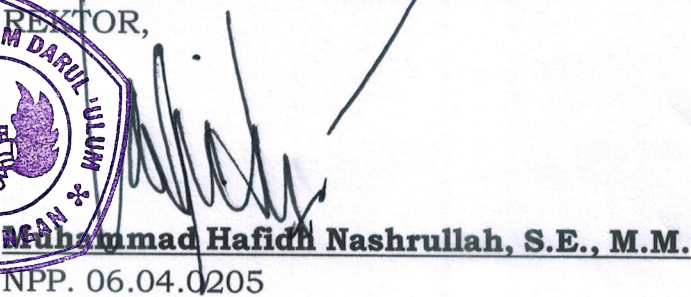 REKTOR,
M DARUL 'ULUM
NGAN
Muhammad Hafidh Nashrullah, S.E., M.M.
NPP. 06.04.0205